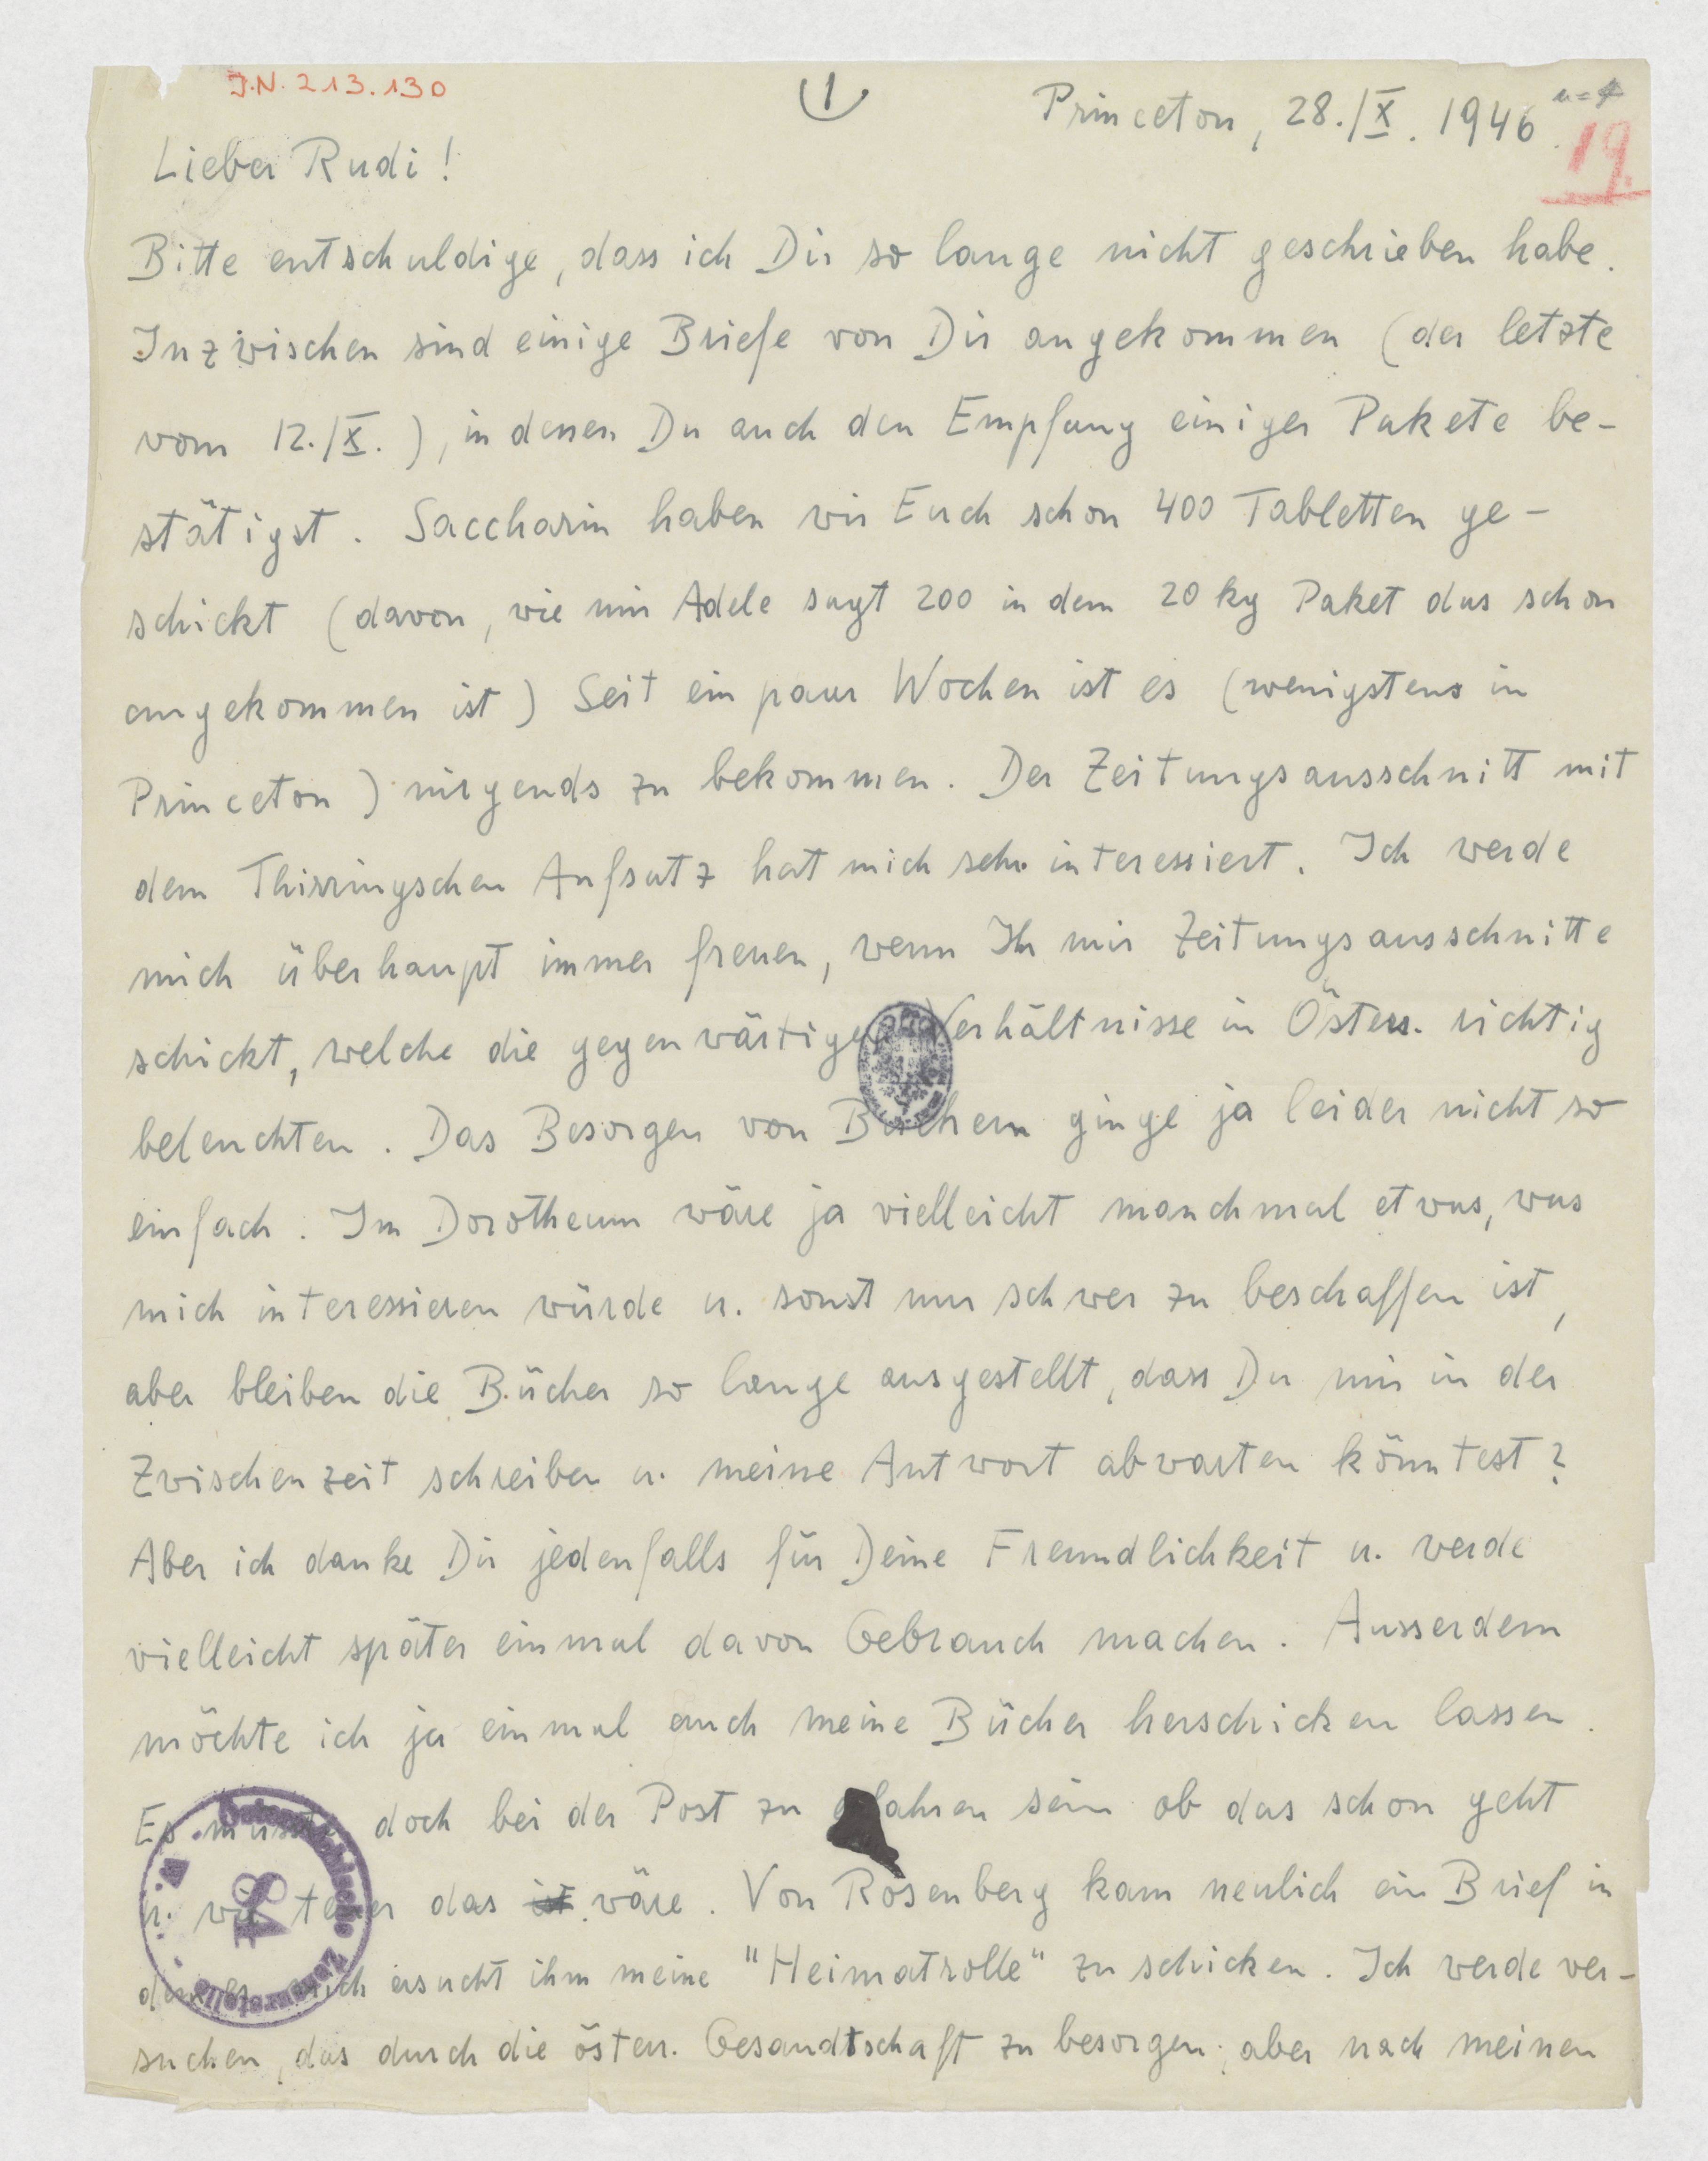 J.N. 213.130
1
Princeton, 28./X. 1946.
19.
Lieber Rudi!
Bitte entschuldige, dass ich Dir so lange nicht geschrieben habe.
Inzwischen sind einige Briefe von Dir angekommen (der letzte
vom 12./X.), in denen Du auch den Empfang einiger Pakete be-
stätigst. Saccharin haben wir Euch schon 400 Tabletten ge-
schickt (davon, wie mir Adele sagt 200 in dem 20 kg Paket das schon
angekommen ist) Seit ein paar Wochen ist es (wenigstens in
Princeton) nirgends zu bekommen. Der Zeitungsausschnitt mit
dem Thirringschen Aufsatz hat mich sehr interessiert. Ich werde
mich überhaupt immer freuen, wenn Ihr mir Zeitungsausschnitte
schickt, welche die gegenwärtigen Verhältnisse in Österr. richtig
beleuchten. Das Besorgen von Büchern ginge ja leider nicht so
einfach. Im Dorotheum wäre ja vielleicht manchmal etwas, was
mich interessieren würde u. sonst nur schwer zu beschaffen ist,
aber bleiben die Bücher so lange ausgestellt, dass Du mir in der
Zwischenzeit schreiben u. meine Antwort abwarten könntest?
Aber ich danke Dir jedenfalls für Deine Freundlichkeit u. werde
vielleicht später einmal davon Gebrauch machen. Ausserdem
möchte ich ja einmal auch meine Bücher herschicken lassen.
Es müsste doch bei der Post zu erfahren sein ob das schon geht
u. wie teuer das ist wäre. Von Rosenberg kam neulich ein Brief in
dem er mich ersucht ihm meine "Heimatrolle" zu schicken. Ich werde ver-
suchen, das durch die österr. Gesandtschaft zu besorgen; aber nach meinen
Österreichische Zensurstelle
W.
84